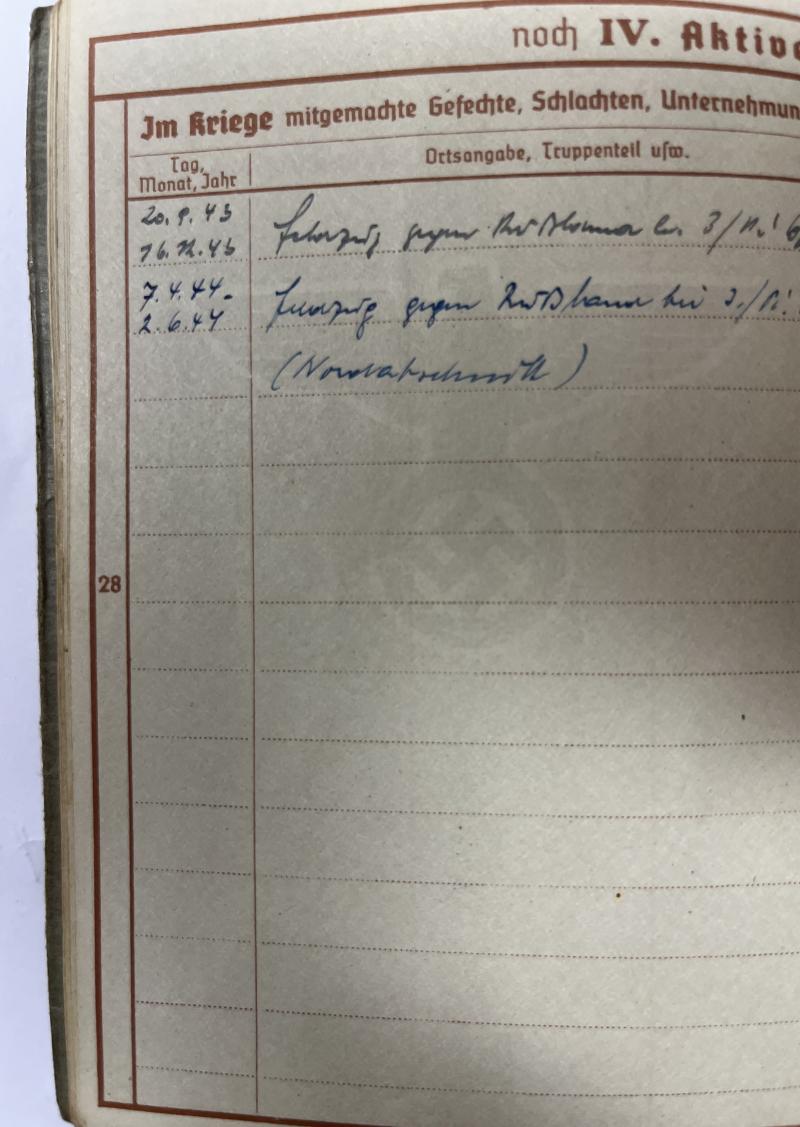 noch IV. Aktive
Im Kriege mitgemachte Gefechte, Schlachten, Unternehmun
Tag,
Monat, Jahr
Ortsangabe, Truppenteil usw.
20.9.43
Feldzug gegen Rußland
16.12.43
7.4.44-
Feldzug gegen Rußland bei
2.6.44
(Nordabschnitt)
28